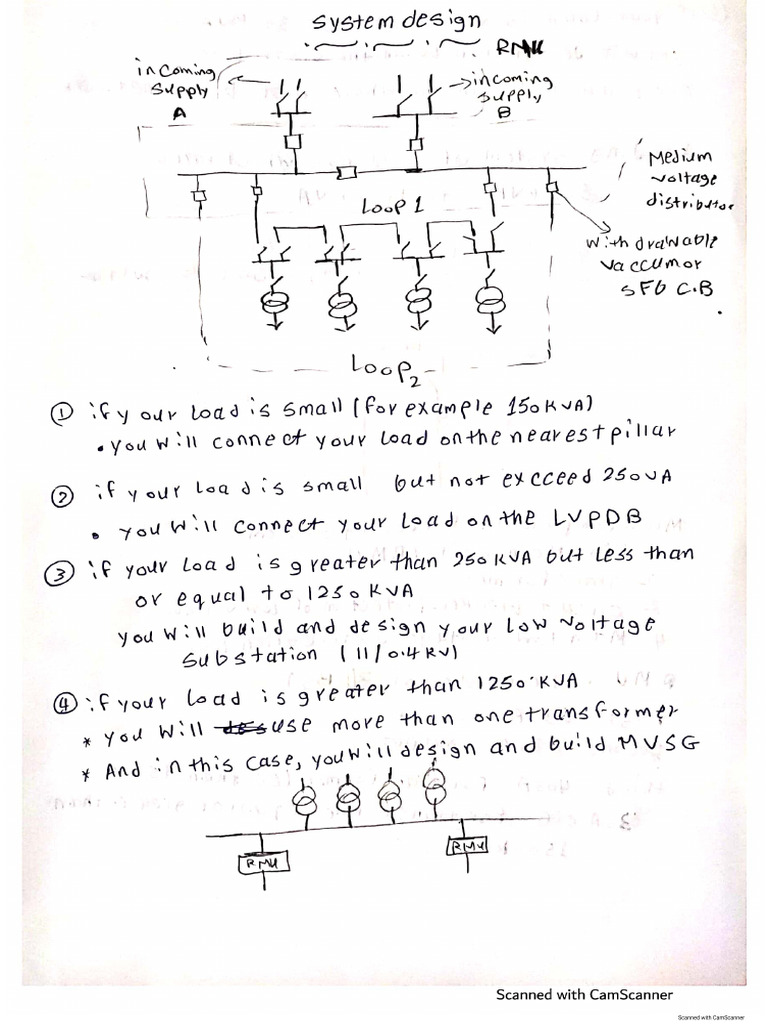 system design
RMU
incoming
supply
A
incoming
supply
B
Medium
voltage
distributor
Loop 1
withdrawable
vaccum or
SF6 C.B
Loop2
① if your Load is small (for example 150KVA)
• you will connect your Load on the nearest pillar
② if your Load is small but not exceed 250VA
• you will connect your Load on the LVPDB
③ if your Load is greater than 250KVA but Less than
or equal to 1250KVA
you will build and design your Low voltage
substation (11/0.4KV)
④ if your Load is greater than 1250KVA
* you will use more than one transformer
* And in this case, you will design and build MVSG
RMU
RMU
Scanned with CamScanner
Scanned with CamScanner